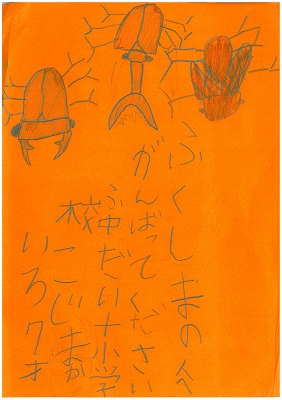 ふくしまの人へ
がんばってください
ふ中だい十小学
校 こじまか
いろ7才